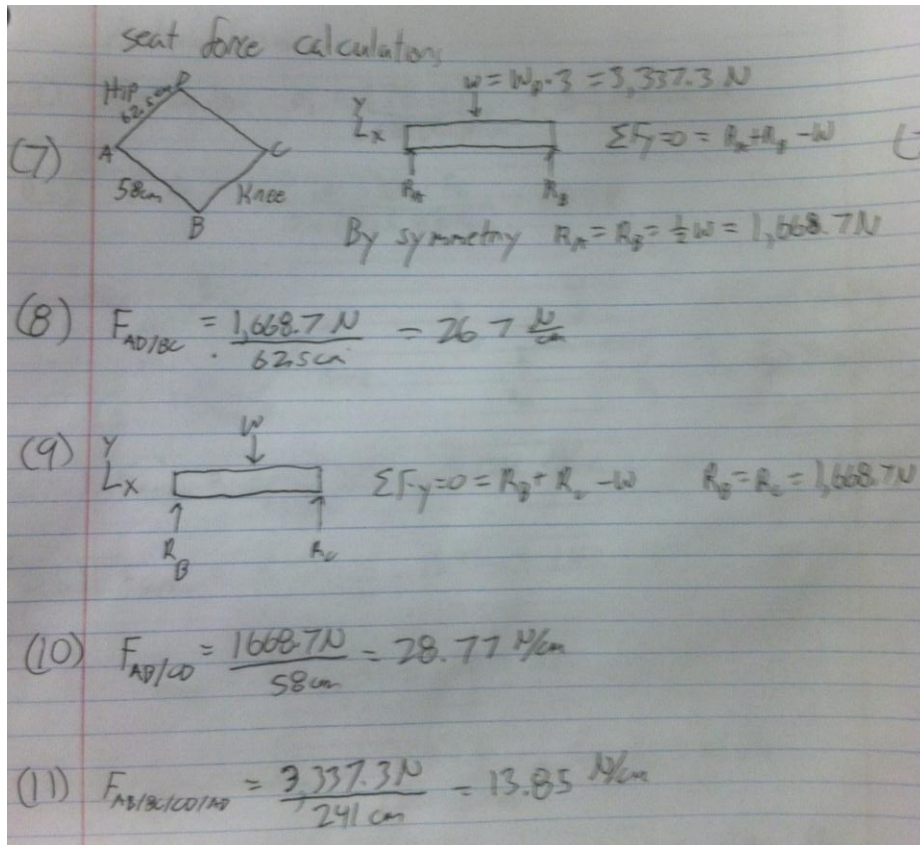 seat force calculations
Hip
62.5cm
D
A
C
58cm
Knee
B
(7)
W = W_P·3 = 3,337.3 N
Y
X
R_A
R_B
ΣFy=0 = R_A+R_B -W
By symmetry R_A = R_B = ½W = 1,668.7N
(8) F_AD/BC = 1,668.7 N / 62.5cm = 26.7 N/cm
(9) Y
X
W
R_B
R_C
ΣFy=0 = R_B + R_C -W R_B = R_C = 1,668.7N
(10) F_AB/CD = 1668.7N / 58cm = 28.77 N/cm
(11) F_AB/BC/CD/AD = 3,337.3N / 241 cm = 13.85 N/cm